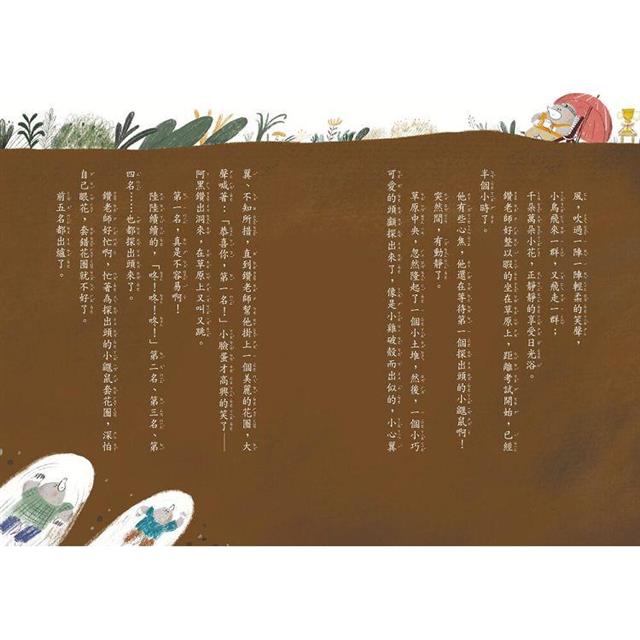 風，吹過一陣一陣輕柔的笑聲，
小鳥飛來一群，又飛走一群；
千朵萬朵小花，正靜靜的享受日光浴。
鑽老師好整以暇的坐在草原上，距離考試開始，已經
半個小時了。
他有些心焦，他還在等待第一個探出頭的小鼴鼠啊！
突然間，有動靜了。
草原中央，忽然隆起了一個小土堆，然後，一個小巧
可愛的頭顱探出來了，像是小雞破殼而出似的，小心翼
翼、不知所措，直到鑽老師幫他掛上一個美麗的花圈，大
聲喊著：「恭喜你，第一名！」小臉蛋才高興的笑了——
阿黑鑽出洞來，在草原上又叫又跳。
第一名，真是不容易啊！
陸陸續續的，「咚！咚！咚！」第二名、第三名、第
四名……也都探出頭來了。
鑽老師好忙啊，忙著為探出頭的小鼴鼠套花圈，深怕
自己眼花，套錯花圈就不好了。
前五名都出爐了。